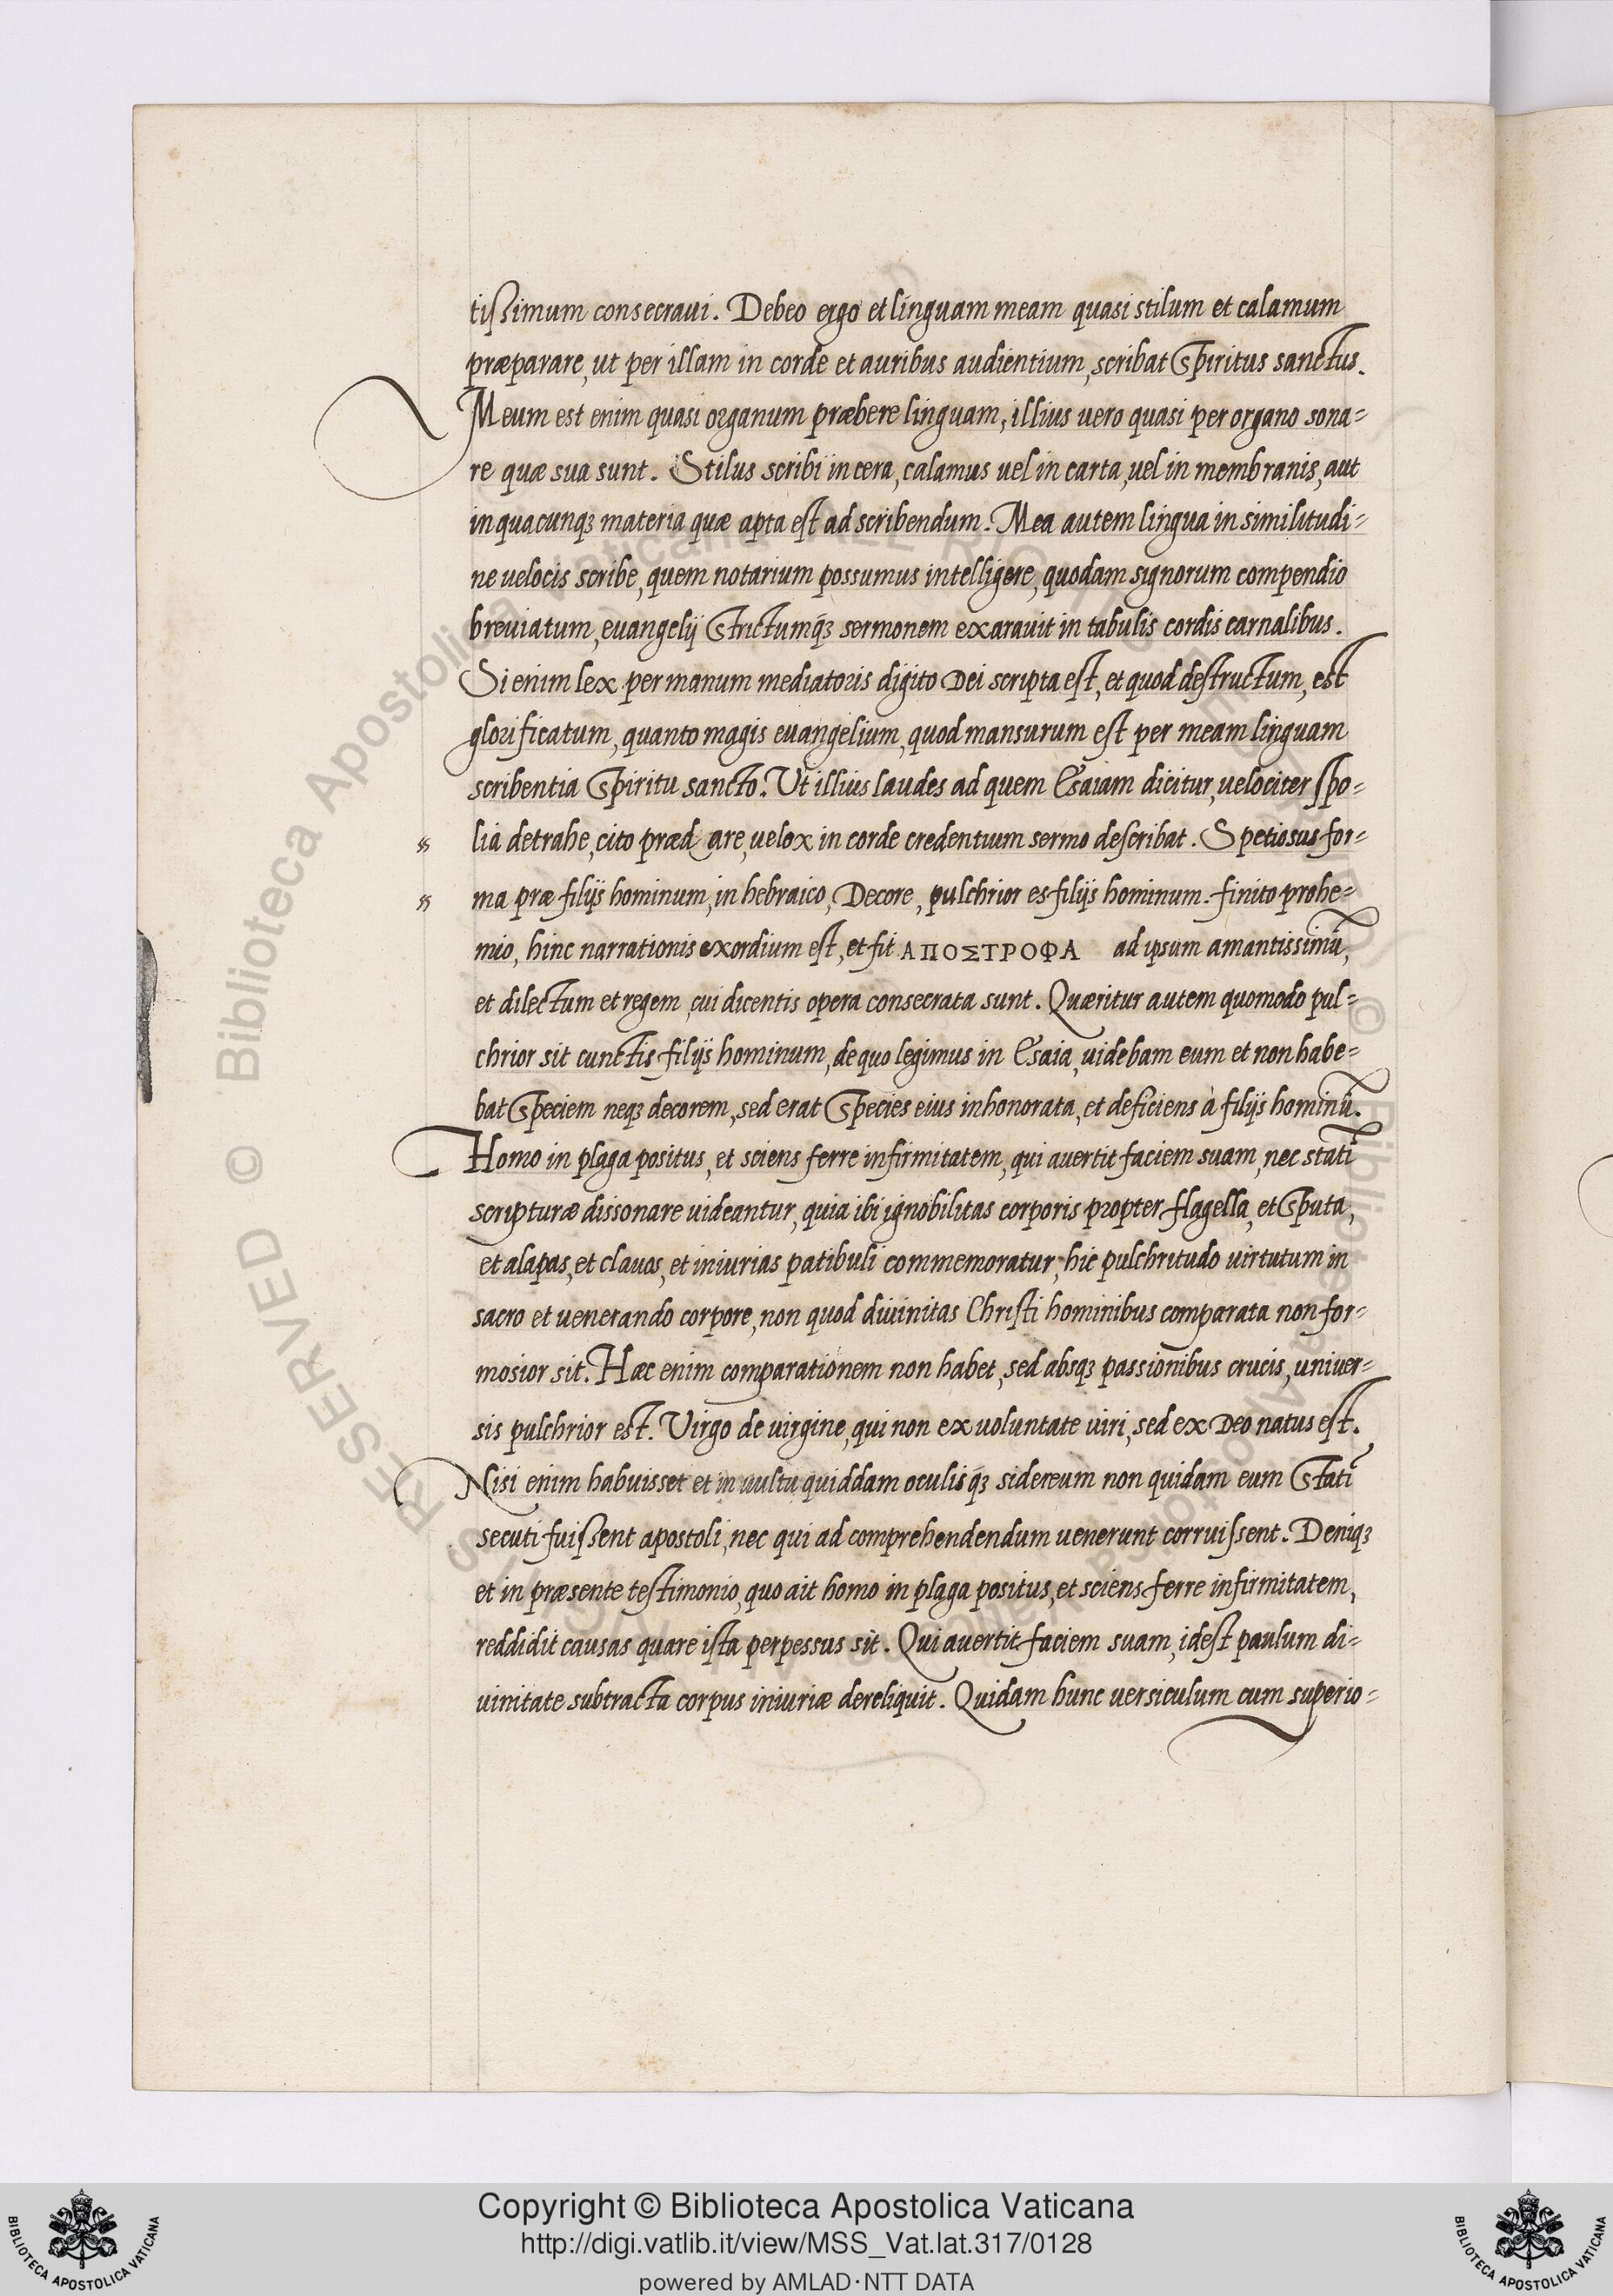 tissimum consecraui. Debeo ergo et linguam meam quasi stilum et calamum
præparare, ut per illam in corde et auribus audientium, scribat Spiritus sanctus.
Meum est enim quasi organum præbere linguam, illius uero quasi per organo sona=
re quæ sua sunt. Stilus scribi in cera, calamus uel in carta, uel in membranis, aut
in quacunqꝫ materia quæ apta est ad scribendum. Mea autem lingua in similitudi=
ne uelocis scribe, quem notarium possumus intelligere, quodam signorum compendio
breuiatum, euangelij strictumqꝫ sermonem exarauit in tabulis cordis carnalibus.
Si enim lex per manum mediatoris digito Dei scripta est, et quod destructum, est
glorificatum, quanto magis euangelium, quod mansurum est per meam linguam
scribentia Spiritu sancto. Ut illius laudes ad quem Esaiam dicitur, uelociter spo=
lia detrahe, cito prædare, uelox in corde credentium sermo describat. Spetiosus for=
ma præ filijs hominum, in hebraico, Decore, pulchrior es filijs hominum. finito prohe=
mio, hinc narrationis exordium est, et fit ΑΠΟΣΤΡΟΦΑ ad ipsum amantissimū,
et dilectum et regem, cui dicentis opera consecrata sunt. Quæritur autem quomodo pul=
chrior sit cunctis filijs hominum, de quo legimus in Esaia, uidebam eum et non habe=
bat speciem neqꝫ decorem, sed erat species eius inhonorata, et deficiens à filijs hominū.
Homo in plaga positus, et sciens ferre infirmitatem, qui auertit faciem suam, nec statī
scripturæ dissonare uideantur, quia ibi ignobilitas corporis propter flagella, et sputa,
et alapas, et clauos, et iniurias patibuli commemoratur, hic pulchritudo uirtutum in
sacro et uenerando corpore, non quod diuinitas Christi hominibus comparata non for=
mosior sit. Hæc enim comparationem non habet, sed absqꝫ passionibus crucis, uniuer=
sis pulchrior est. Virgo de virgine, qui non ex uoluntate uiri, sed ex Deo natus est.
Nisi enim habuisset et in uultu quiddam oculisqꝫ sidereum non quidam eum statī
secuti fuissent apostoli, nec qui ad comprehendendum uenerunt corruissent. Deniqꝫ
et in præsente testimonio, quo ait homo in plaga positus, et sciens ferre infirmitatem,
reddidit causas quare ista perpessus sit. Qui auertit faciem suam, idest paulum di=
uinitate subtracta corpus iniuriæ dereliquit. Quidam hunc uersiculum cum superio=
Copyright © Biblioteca Apostolica Vaticana
http://digi.vatlib.it/view/MSS_Vat.lat.317/0128
powered by AMLAD·NTT DATA
BIBLIOTECA APOSTOLICA VATICANA
BIBLIOTECA APOSTOLICA VATICANA